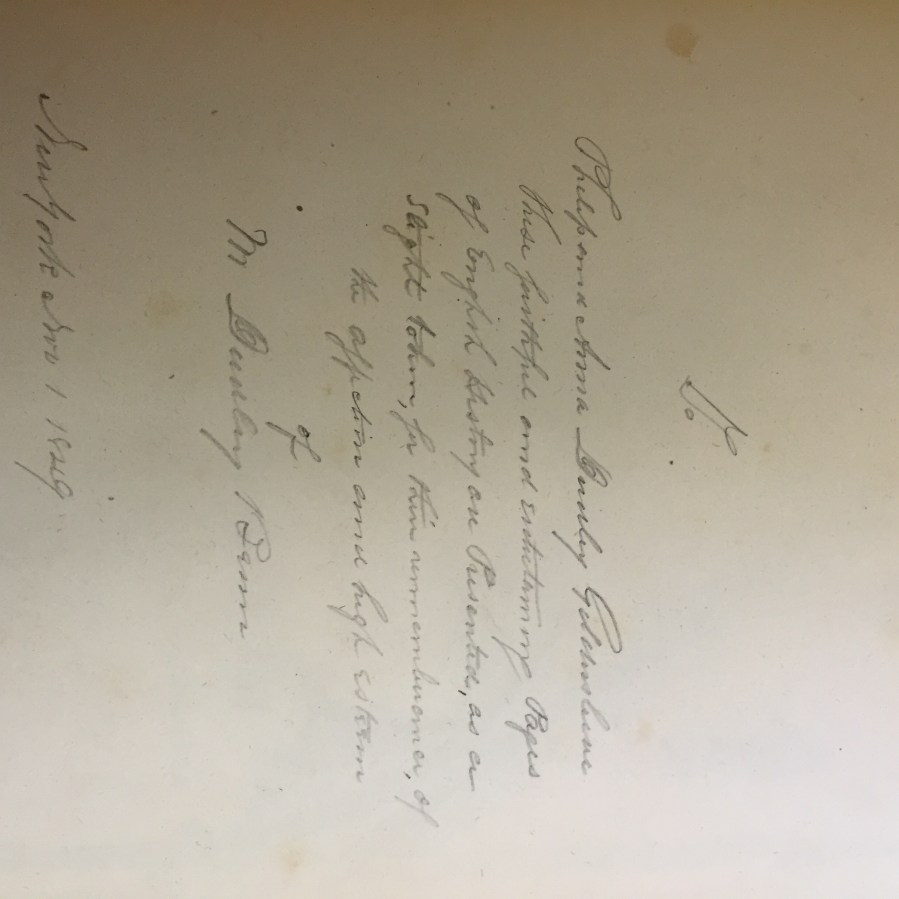 To
Philip and Anna Dudley
These faithful and entertaining Pages
of English History are Presented, as a
slight token, for their remembrance, of
the affection and high esteem
of
M Dudley Bean
New York Nov 1